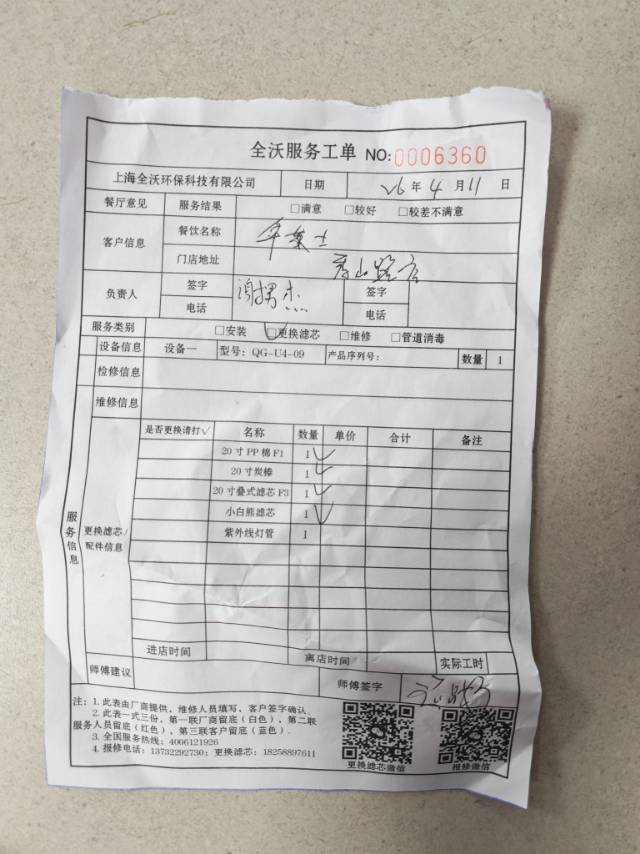 全沃服务工单 NO:0006360
上海全沃环保科技有限公司 日期 26 年 4 月 11 日
餐厅意见 服务结果 □满意 □较好 □较差不满意
客户信息 餐饮名称
门店地址 山路店
负责人 签字 签字
电话 电话
服务类别 □安装 □更换滤芯 □维修 □管道消毒
设备信息 设备一 型号: QG-U4-09 产品序列号: 数量 1
检修信息
维修信息
是否更换请打√ 名称 数量 单价 合计 备注
20寸PP棉F1 1 ✓
20寸炭棒 1 ✓
20寸叠式滤芯F3 1 ✓
小白熊滤芯 1 ✓
紫外线灯管 1
服务信息
更换滤芯/配件信息
进店时间 离店时间 实际工时
师傅建议 师傅签字
注: 1. 此表由厂商提供, 维修人员填写, 客户签字确认。
2. 此表一式三份, 第一联厂商留底(白色), 第二联
服务人员留底(红色), 第三联客户留底(蓝色).
3. 全国服务热线: 4006121926
4. 报修电话: 13732292730; 更换滤芯: 18258897611
更换滤芯微信 报修微信